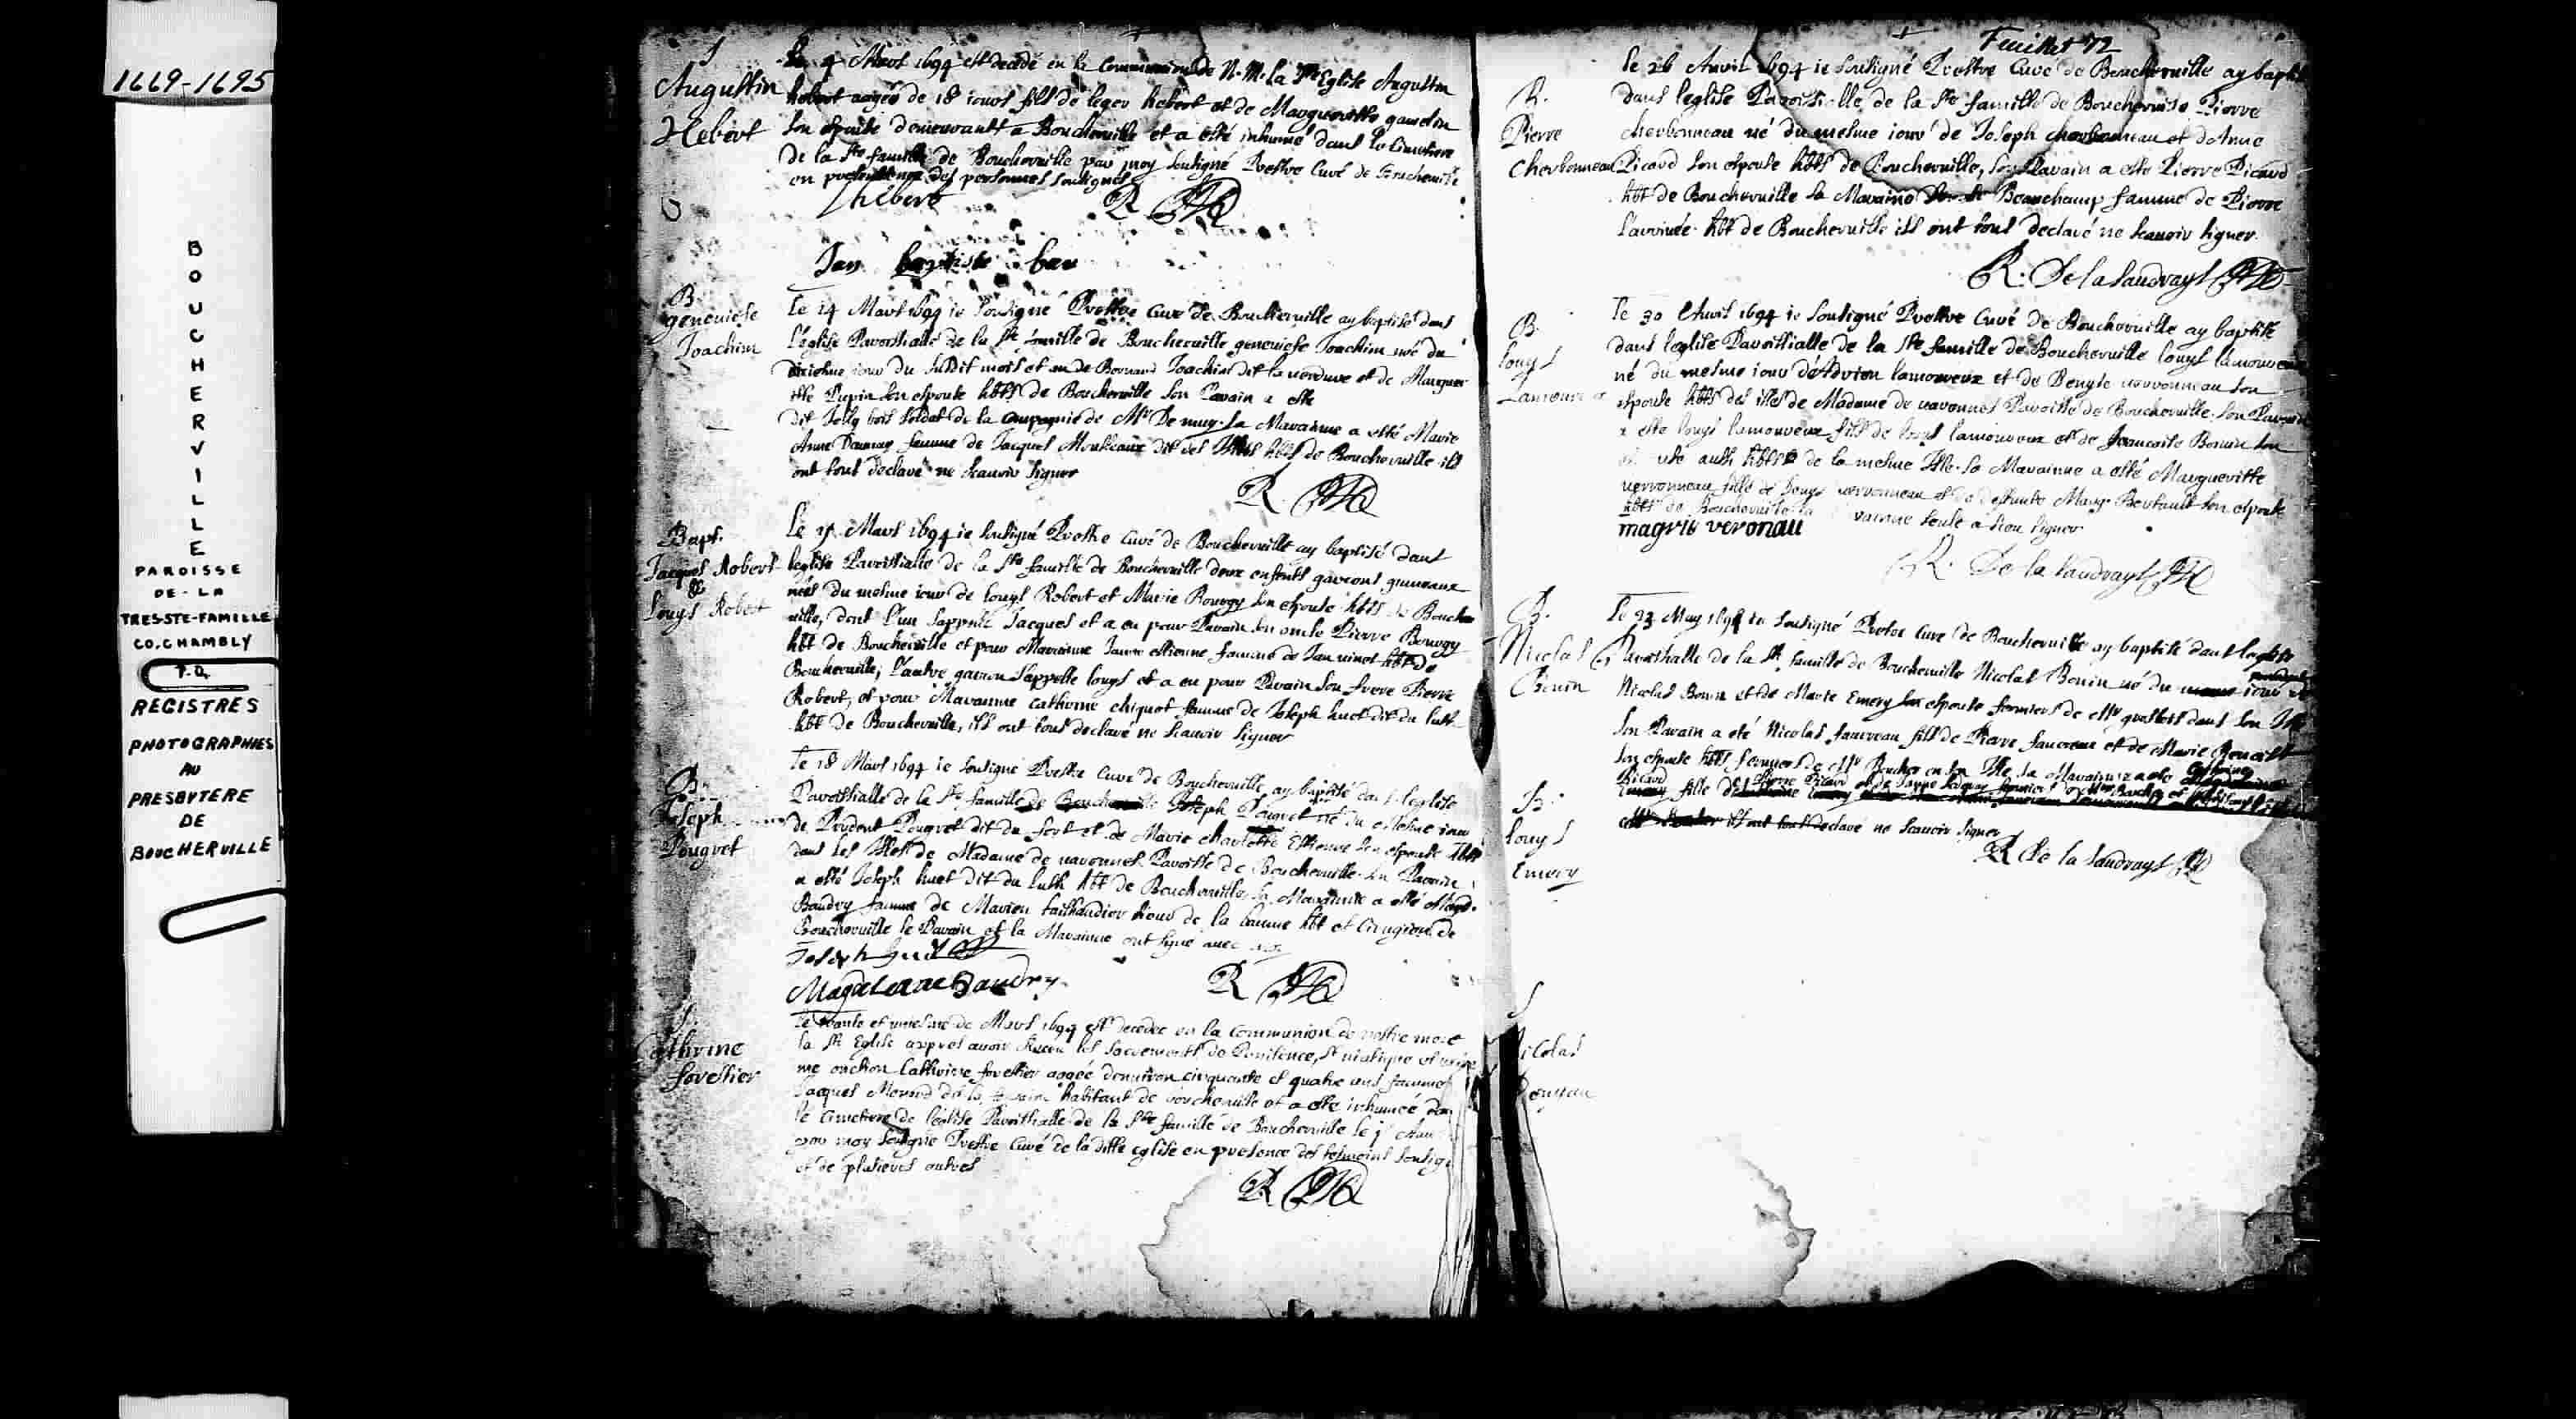 1669-1695
B
O
U
C
H
E
R
V
I
L
L
E
PAROISSE
DE-LA
TRES-STE-FAMILLE
CO. CHAMBLY
P.Q.
REGISTRES
PHOTOGRAPHIES
AU
PRESBYTERE
DE
BOUCHERVILLE
S
Augustin
Hebert
Le 4 Mars 1694 est decedé en la Communion de N. M. la Ste Eglise Augustin
hebert aagé de 18 iours fils de leger hebert et de Margueritte gamelin
son espouse demeurants a Boucherville et a esté inhumé dans le Cimetiere
de la Ste famille de Boucherville par moy soussigné Prestre Curé de Boucherville
en presence des personnes soussignés
lhebert R
Jan baptiste
B.
geneviefe
Joachim
Le 14 Mars 1694 ie soussigné Prestre Curé de Boucherville ay baptisé dans
l'eglise Paroissialle de la Ste famille de Boucherville genevieſe Joachim née du
iour du susdit mois et an de Bernard Joachim dit la verdure et de Marguer
itte Pepin son espouse hbts de Boucherville son Parain a esté
dit Joly bois soldat de la compagnie de Mr De muy. la Maraine a esté Marie
Anne Daunay femme de Jacques Mousseaux dit des Isles hbts de Boucherville ils
ont tous declaré ne scauoir signer
R.
Bapt.
Jacques Robert
&
Louys Robert
Le Mars 1694 ie soussigné Prestre Curé de Boucherville ay baptisé dans
leglise Paroissialle de la Ste famille de Boucherville deux enfants garcons gumeaux
nés du mesme iour de louys Robert et Marie Bourgy son espouse hbts de Boucher
ville, dont l'un sappelle Jacques et a eu pour Parain son oncle Pierre Bourgy
hbt de Boucherville et pour Maraine Jeanne estienne femme de Jan vinet hbt de
Boucherville; l'autre garcon sappelle louys et a eu pour Parain son frere Pierre
Robert, et pour Maraine Catherine chiquot femme de Joseph huet dit du luth
hbt de Boucherville, ils ont tous declaré ne scauoir signer
B.
Joseph
Pouguet
Le 18 Mars 1694 ie soussigné Prestre Curé de Boucherville ay baptisé dans leglise
Paroissialle de la Ste famille de Boucherville Joseph Pouguet né du mesme iour
de Prudent Pouguet dit du fort et de Marie charlotte Estienne son espouse hbts
dans les Isles de Madame de varennes Paroisse de Boucherville. son Parain
a esté Joseph huet dit du luth hbt de Boucherville, la Maraine a esté Magd.
Baudry femme de Marien tailhandier sieur de la baume hbt et Cirugien de
Boucherville le Parain et la Maraine ont signé avec moy
Joseph huet
Magdelenne Baudry R
S.
Cathrine
forestier
Le trante et uniesme de Mars 1694 est decedée en la Communion de nostre mere
la Ste Eglise apres auoir receu les sacrements de Penitence, St viatique et extre
me onction Catherine forestier aagée denuiron cinquante et quatre ans femme
Jacques Menard dit la fontaine habitant de boucherville et a esté inhumée dans
le Cimetiere de l'eglise Paroissialle de la Ste famille de Boucherville le 1r Auril
par moy soussigné Prestre Curé de la ditte eglise en presence des tesmoins soussignés
et de plusieurs autres
R
Feuillet 72
B.
Pierre
Cherbonneau
Le 26 Avril 1694 ie soussigné Prestre Curé de Boucherville ay baptisé
dans leglise Paroissialle de la Ste famille de Boucherville Pierre
cherbonneau né du mesme iour de Joseph cherbonneau et d'Anne
Picard son espouse hbts de Boucherville, son Parain a esté Pierre Picard
hbt de Boucherville sa Maraine Beauchamp femme de Pierre
hbt de Boucherville ils ont tous declaré ne scauoir signer.
R. De la Saudrays
B.
Louys
Lamoureux
Le 30 Avril 1694 ie soussigné Prestre Curé de Boucherville ay baptisé
dans leglise Paroissialle de la Ste famille de Boucherville louys lamoureux
né du mesme iour d'Adrien lamoureux et de Denyse verronneau son
espouse hbts des isles de Madame de varennes Paroisse de Boucherville. son Parain
a esté louys lamoureux fils de louys lamoureux et de francoise Bouin son
aussi hbts de la mesme Isle. sa Maraine a esté Margueritte
verronneau fille de Denys verronneau et de deffunte Marg. Bertault son espouse
hbts de Boucherville la raine seule a sceu signer
magrit veronau
R. De la Saudrays
B.
Nicolas
Bonin
Le 23 May 1694 ie soussigné Prestre Curé de Boucherville ay baptisé dans leglise
Paroissialle de la Ste famille de Boucherville Nicolas Bonin né du iour de
Nicolas Bonin et de Marie Emery son espouse fermiers de Mr dans son Isle
son Parain a eté Nicolas faureau fils de Pierre faureau et de Marie Benoist
son espouse hbts fermiers de Mr Boucher en son Isle, la Maraine a eté Catherine
Picard fille de Pierre Picard et de
ils ont tous declaré ne scauoir signer
R De la Saudrays
B.
Louys
Emery
S
Nicolas